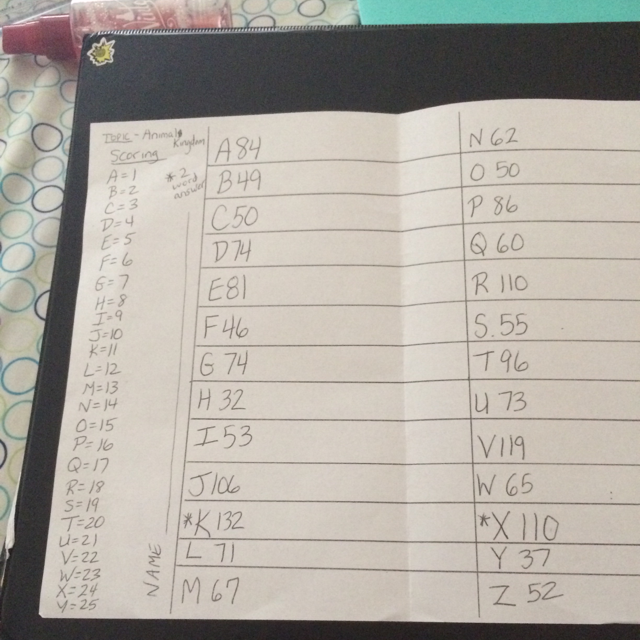 TOPIC - Animal Kingdom
Scoring
* 2 word answer
A=1
B=2
C=3
D=4
E=5
F=6
G=7
H=8
I=9
J=10
K=11
L=12
M=13
N=14
O=15
P=16
Q=17
R=18
S=19
T=20
U=21
V=22
W=23
X=24
Y=25
NAME
A 84
B 49
C 50
D 74
E 81
F 46
G 74
H 32
I 53
J 106
*K 132
L 71
M 67
N 62
O 50
P 86
Q 60
R 110
S. 55
T 96
U 73
V 119
W 65
*X 110
Y 37
Z 52